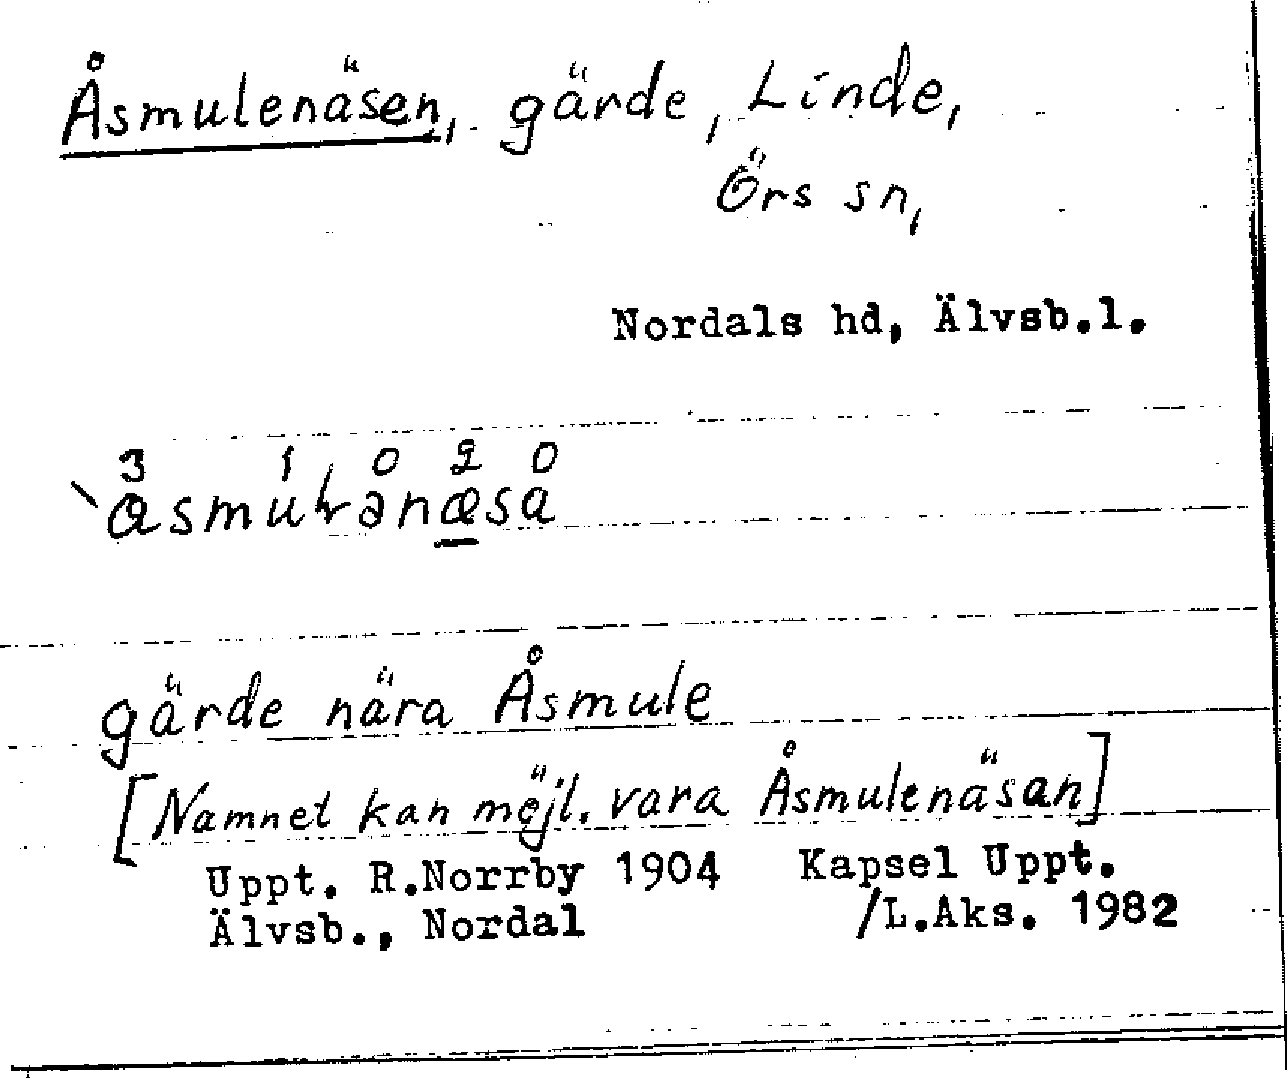 Åsmulenäsen, gärde, Linde,
Örs sn,
Nordals hd, Älvsb.l.
3 1 0 2 0
gärde nära Åsmule
[Namnet kan möjl. vara Åsmulenäsan]
Uppt. R.Norrby 1904 Kapsel Uppt.
Älvsb., Nordal /L.Aks. 1982